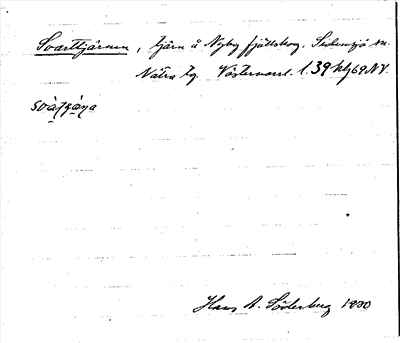 Svarttjärnen, tjärn å Nyby fjällskog, Sidensjö sn.
Nätra tg Västernorrl. l. 39 klj 69 NV.
svàțțæ̀ṇa
Hans A. Söderberg 1930